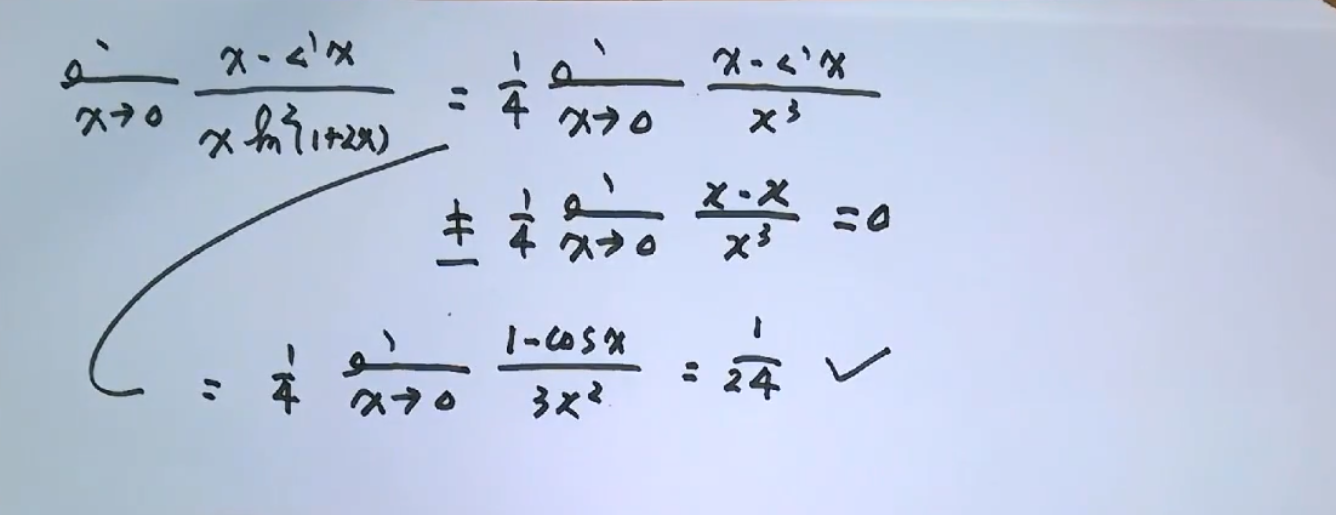 lim x→0 (x - sin x)/(x ln²(1+2x)) = 1/4 lim x→0 (x - sin x)/x³
≠ 1/4 lim x→0 (x - x)/x³ = 0
= 1/4 lim x→0 (1 - cos x)/(3x²) = 1/24 ✓